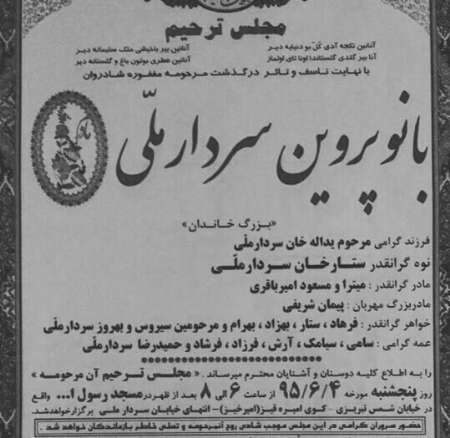 مجلس ترحیم
آنانین نکجه آدی گل بو دنیایه دیر
آنانین بیر باخیشی ملک سلیمانه دیر
آنا بیر گلدی گلستاندا اونا تای اولماز
آنانین عطری بوتون باغ و گلستانه دیر
با نهایت تاسف و تاثر درگذشت مرحومه مغفوره شادروان
بانو پروین سردار ملّی
«بزرگ خاندان»
فرزند گرامی مرحوم یداله خان سردارملّی
نوه گرانقدر ستارخان سردارملّی
مادر گرانقدر : میترا و مسعود امیرباقری
مادربزرگ مهربان : پیمان شریفی
خواهر گرانقدر : فرهاد ، ستار ، بهزاد ، بهرام و مرحومین سیروس و بهروز سردارملّی
عمه گرامی : سامی ، سیامک ، آرش ، فرزاد ، فرشاد و حمیدرضا سردارملّی
را به اطلاع کلیه دوستان و آشنایان محترم میرساند . «مجلس ترحیم آن مرحومه»
روز پنجشنبه مورخه ۹۵/۶/۴ از ساعت ۶ الی ۸ بعد از ظهر در مسجد رسول ا... واقع
در خیابان شمس تبریزی - کوی امیره قیز(امیرخیز) - انتهای خیابان سردار ملی برگزار خواهد شد.
حضور سروران گرامی در این مجلس موجب شادی روح آنمرحومه و تسلی خاطر بازماندگان خواهد شد .